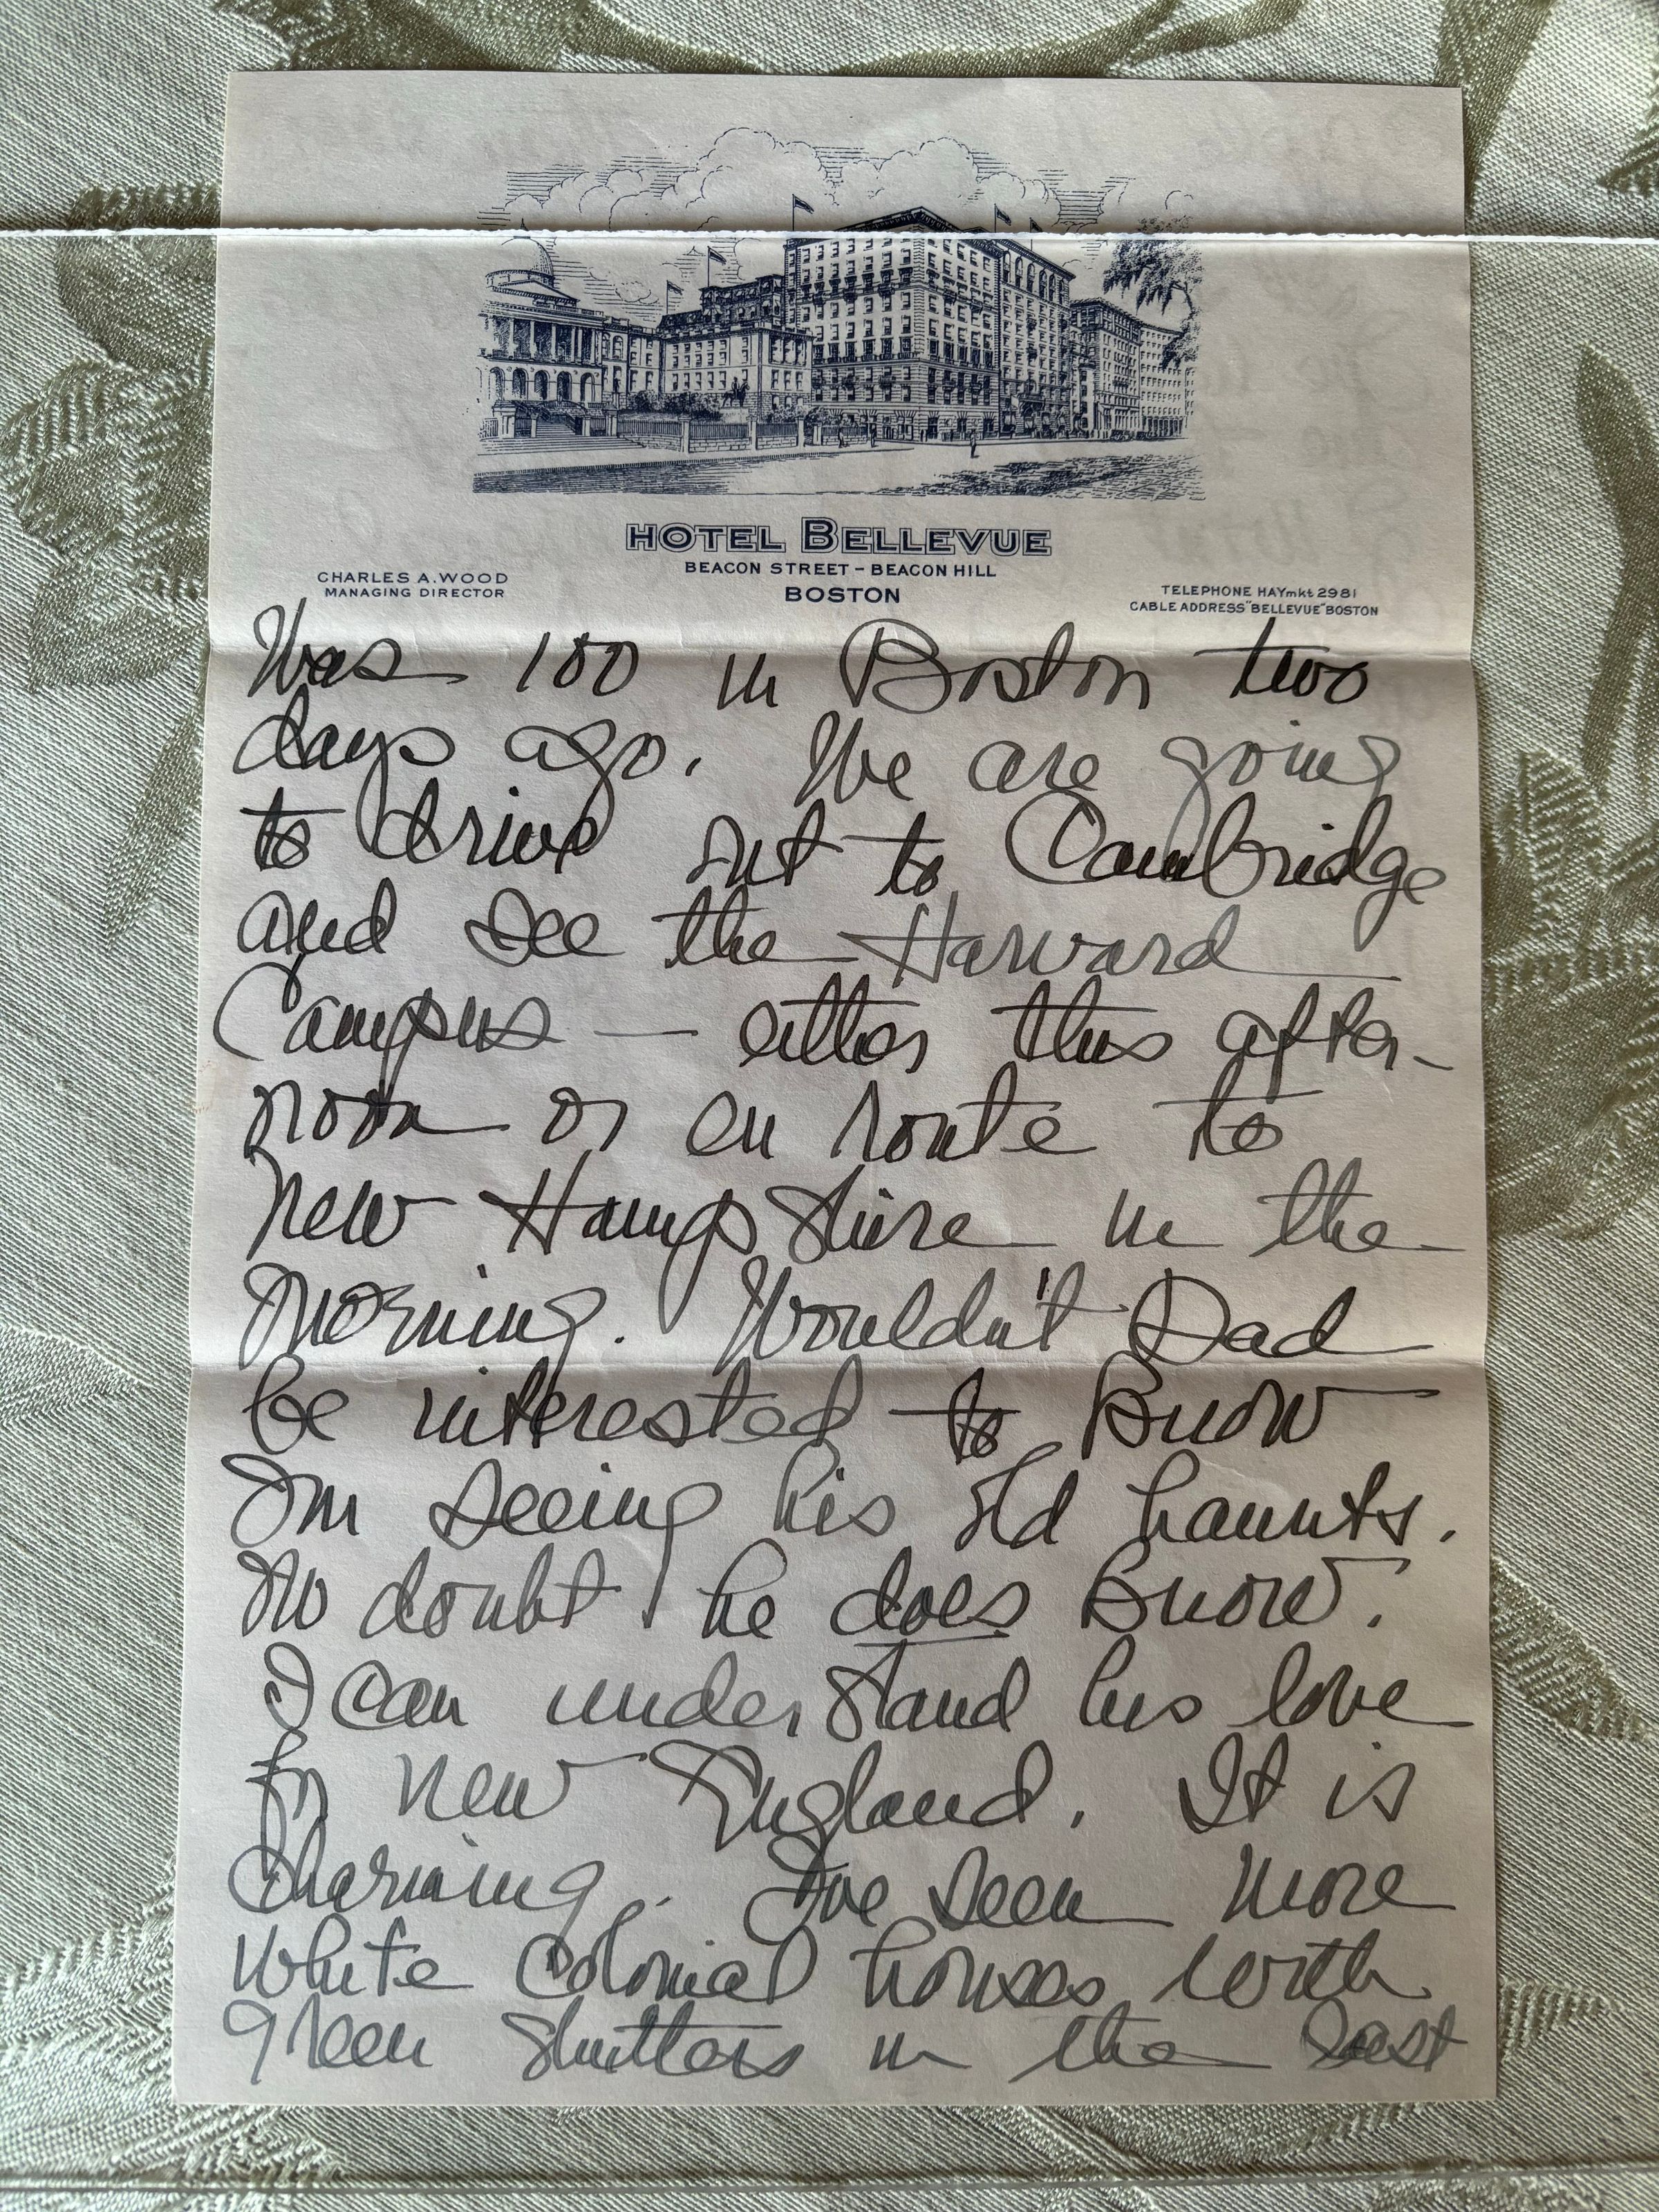 HOTEL BELLEVUE
BEACON STREET - BEACON HILL
BOSTON
CHARLES A. WOOD
MANAGING DIRECTOR
TELEPHONE HAYmkt 2981
CABLE ADDRESS "BELLEVUE" BOSTON
Was 100 in Boston two
days ago. We are going
to drive out to Cambridge
and see the Harvard
Campus — either this after-
noon or en route to
New Hampshire in the
morning. Wouldn't Dad
be interested to know
I'm seeing his old haunts.
No doubt he does know.
I can understand his love
for New England. It is
charming. I've seen more
white colonial houses with
green shutters in the last